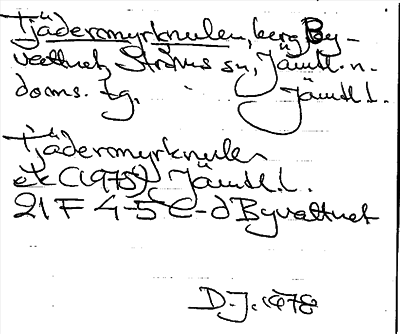 Tjädermyrknulen, berg By-
vattnet, Ströms sn, Jämtl. n.
doms. tg. Jämtl. l.
Tjädermyrknulen
ek (1975) Jämtl. l.
21 F 4-5 c-d Byvattnet
D. J. 1978